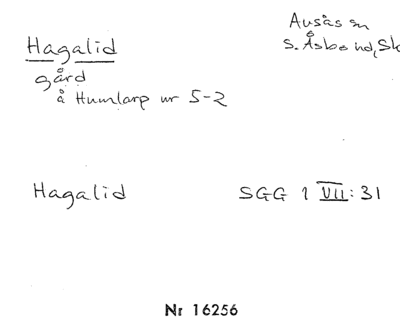 Hagalid
Ausås sn
S. Åsbo hd, Sk
gård
å Humlarp nr 5-2
Hagalid SGG 1 VII:31
Nr 16256